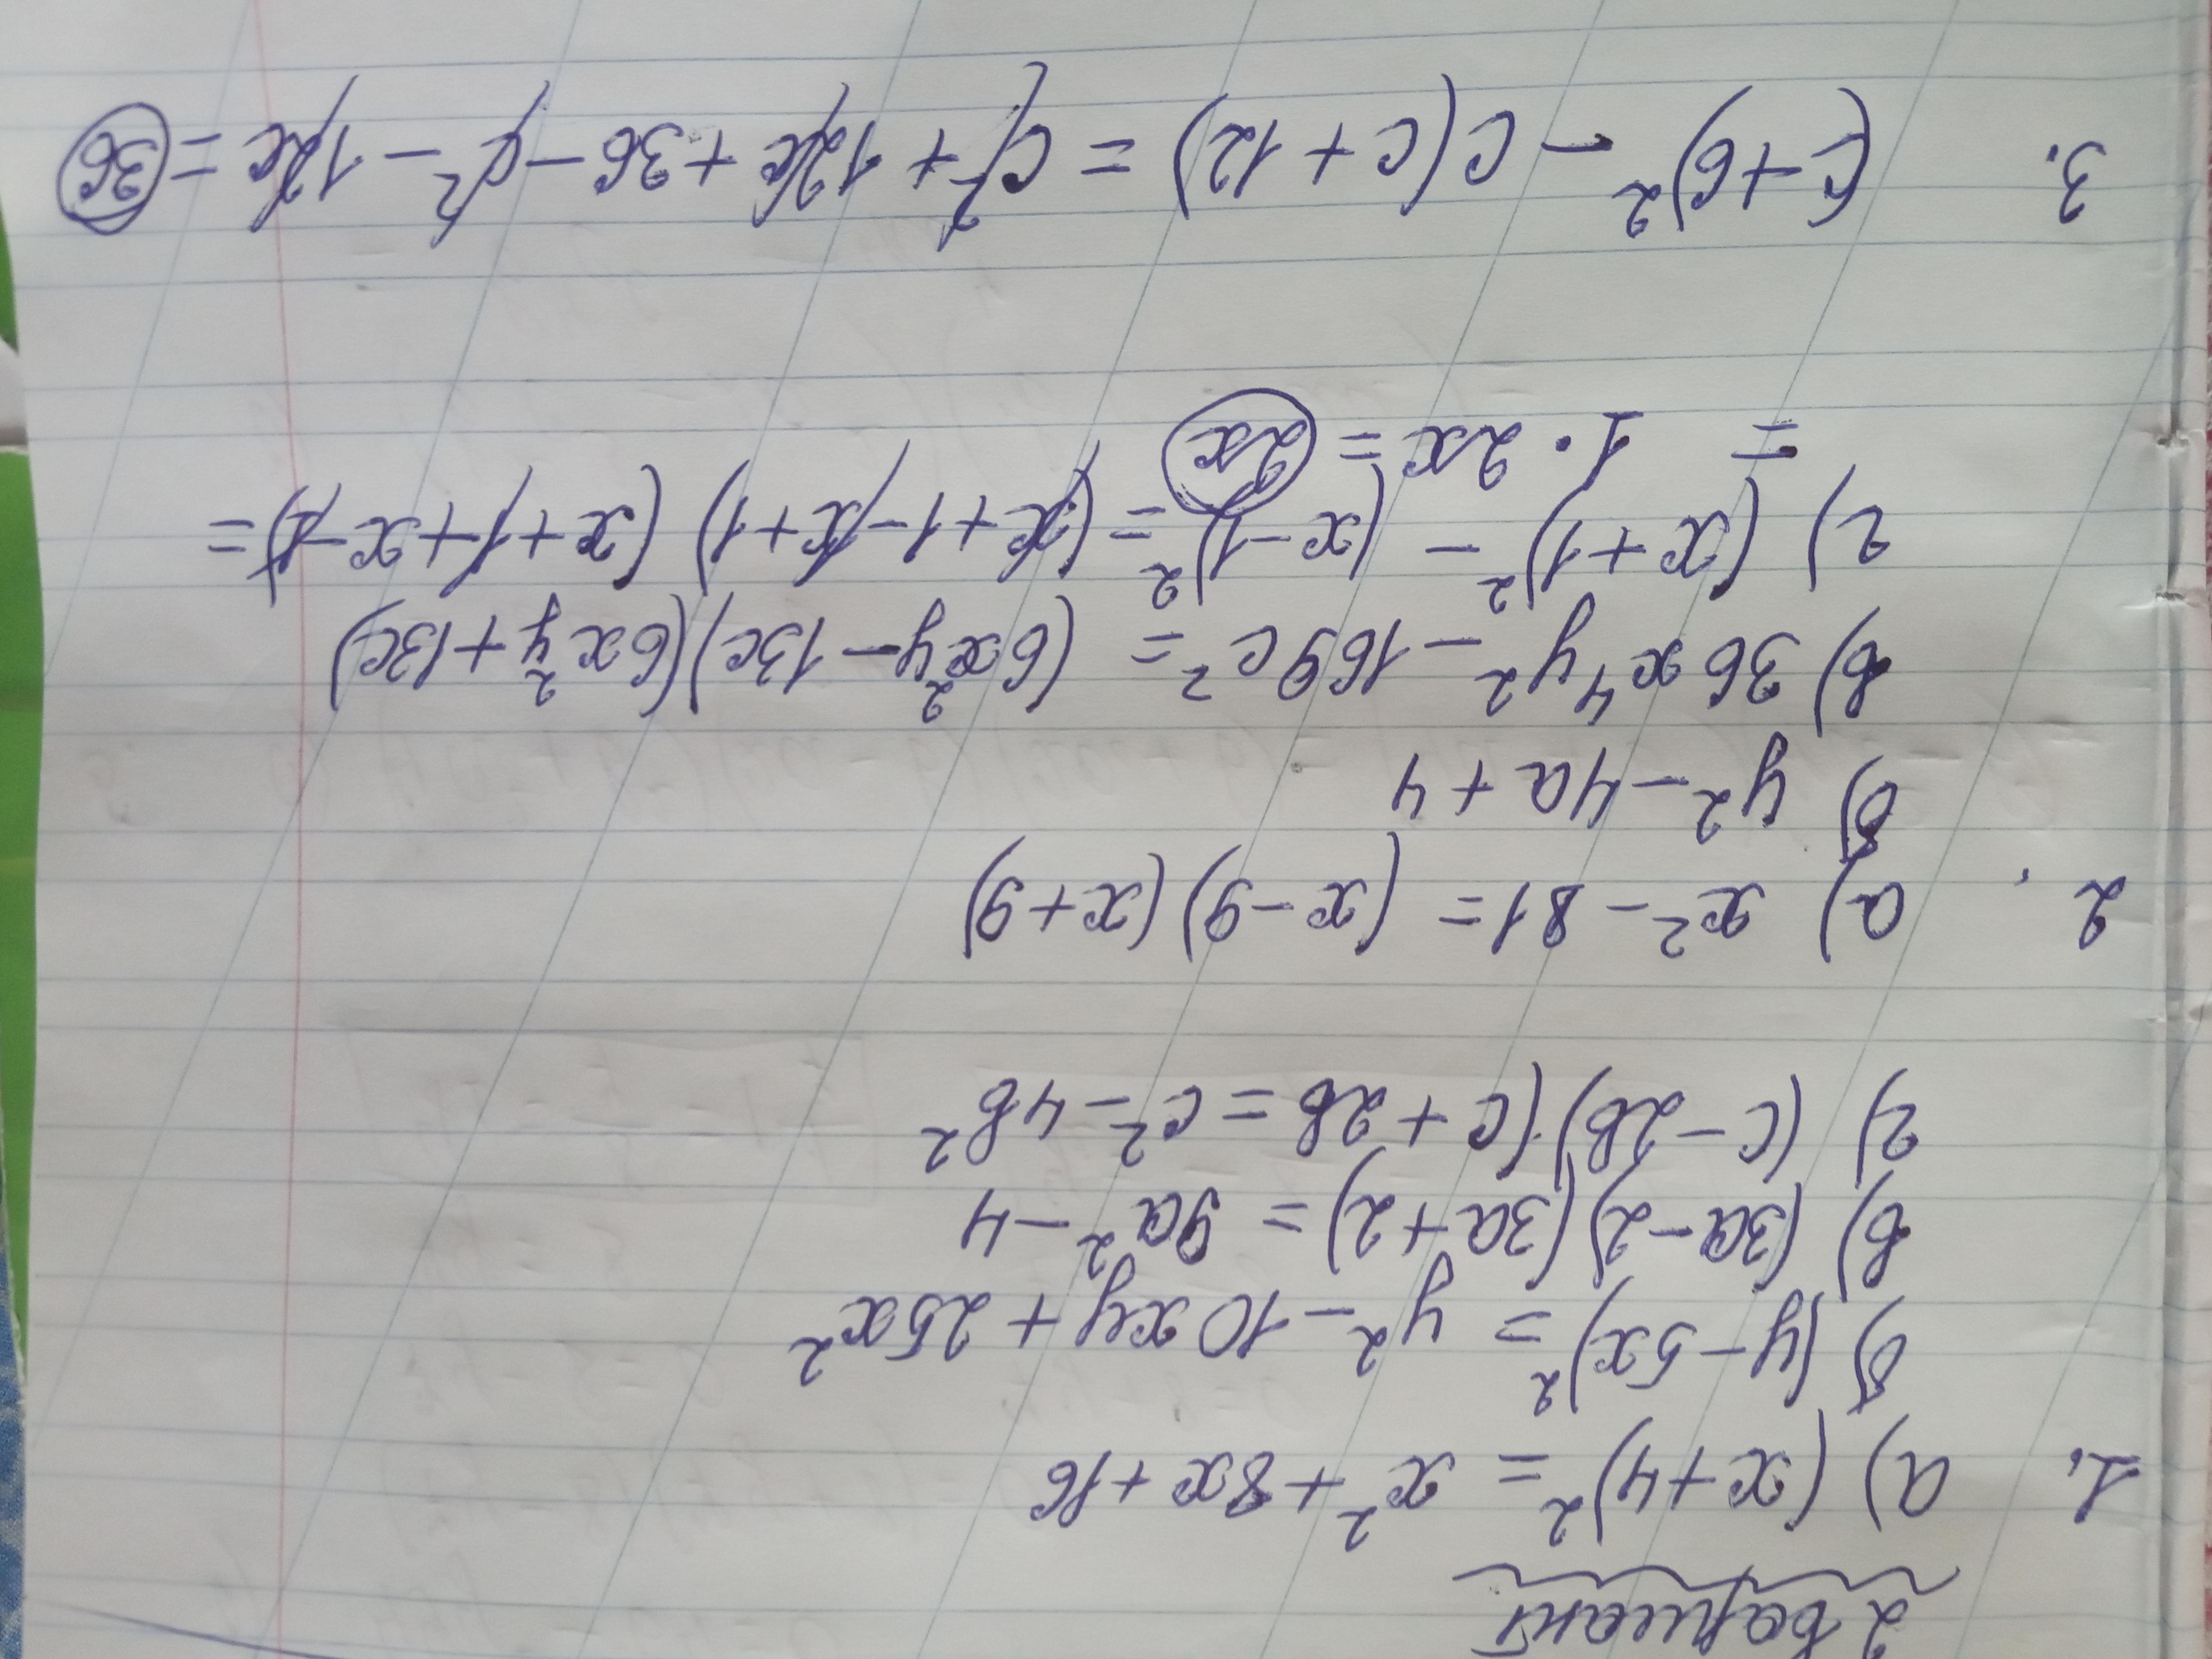 2 вариант
1. а) (x+4)² = x² + 8x + 16
б) (y-5x)² = y² - 10xy + 25x²
в) (3a-2)(3a+2) = 9a² - 4
г) (c-2в)(c+2в = c² - 4в²
2. а) x² - 81 = (x-9)(x+9)
б) y² - 4a + 4
в) 36x⁴y² - 169c² = (6x²y - 13c)(6x²y + 13c)
г) (x+1)² - (x-1)² = (x+1-x+1)(x+1+x-1) =
= 1 · 2x = 2x
3. (c+6)² - c(c+12) = c² + 12c + 36 - c² - 12c = 36